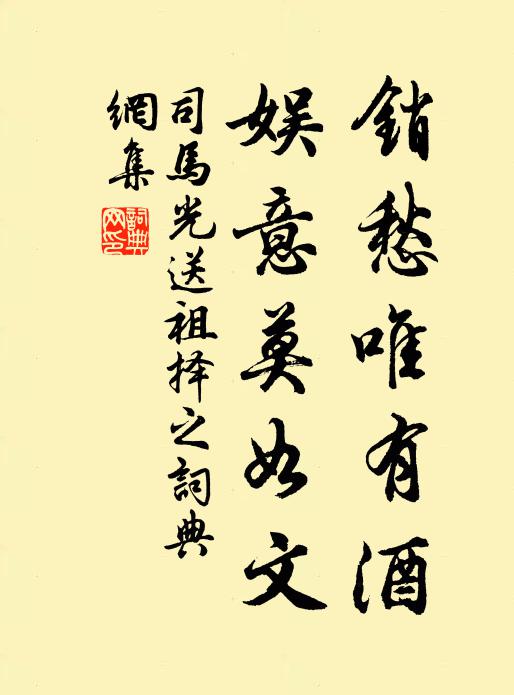 銷愁唯有酒
娱意莫如文
司馬光送祖择之詞典
網集
詞典网印